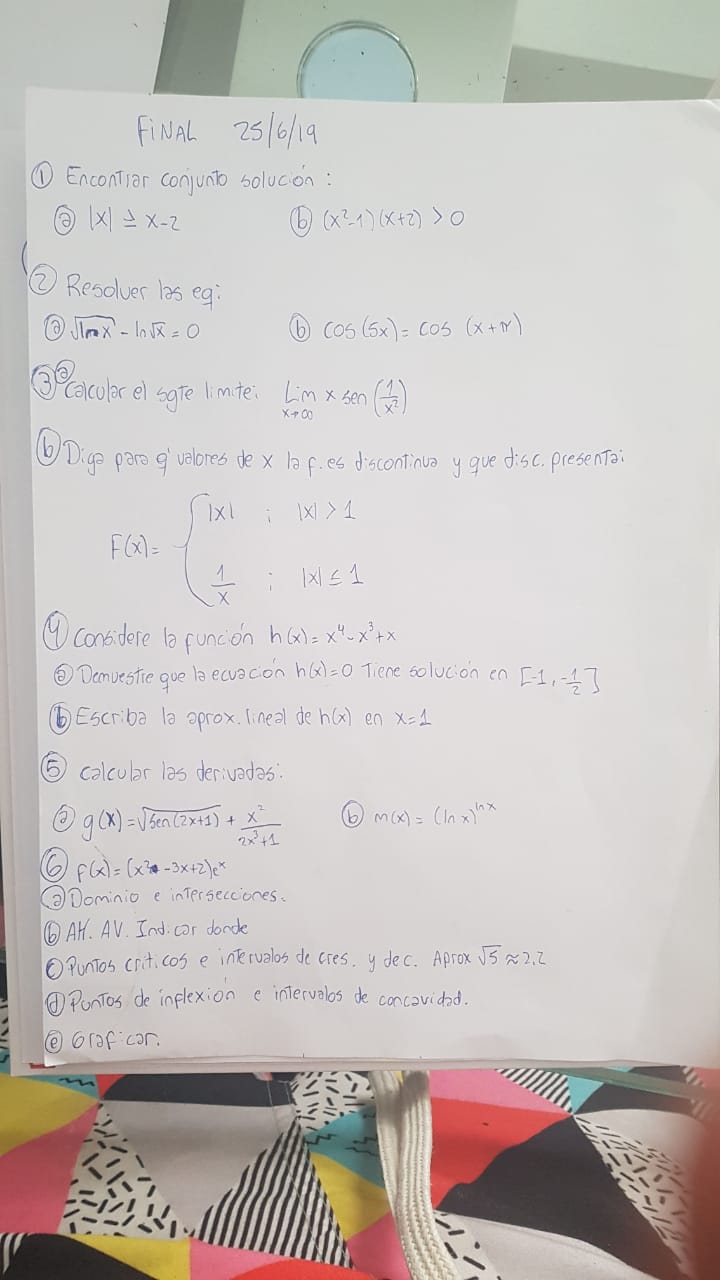 FINAL 25/6/19
① Encontrar conjunto solución:
ⓐ |x| ≥ x-2 ⓑ (x²-1)(x+2) > 0
② Resolver las eq:
ⓐ √ln x - ln√x = 0 ⓑ cos(5x) = cos (x+π)
③ ⓐ Calcular el sgte limite: Lim x→∞ x sen (1/x²)
ⓑ Diga para q' valores de x la f. es discontinua y que disc. presenta:
F(x) = { |x| ; |x| > 1
1/x ; |x| ≤ 1
④ Considere la función h(x) = x⁴-x³+x
ⓐ Demuestre que la ecuación h(x)=0 Tiene solución en [-1, -1/2]
ⓑ Escriba la aprox. lineal de h(x) en x=1
⑤ calcular las derivadas:
ⓐ g(x) = √sen(2x+1) + x²/(2x³+1) ⓑ m(x) = (ln x)^ln x
⑥ f(x) = (x² -3x+2)eˣ
ⓐ Dominio e intersecciones.
ⓑ AH. AV. Indicar donde
ⓒ Puntos criticos e intervalos de cres. y dec. Aprox √5 ≈ 2,2
ⓓ Puntos de inflexión e intervalos de concavidad.
ⓔ Graficar.